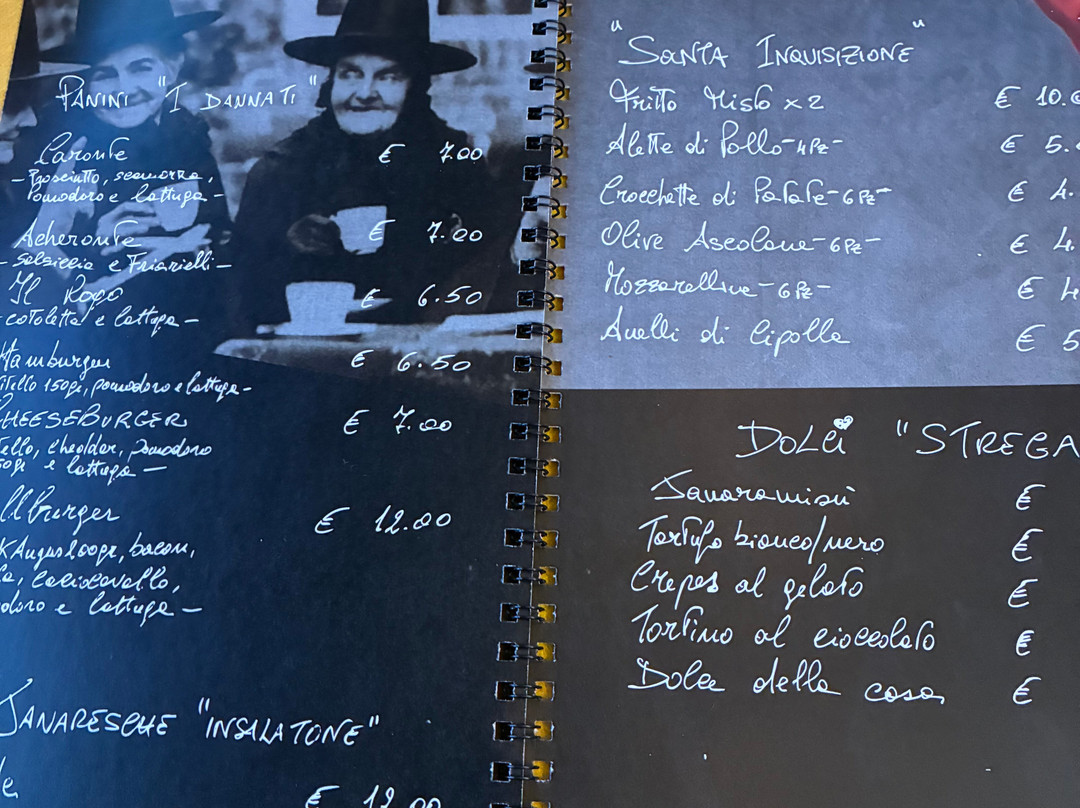 PANINI "I DANNATI"
Caronte € 7.00
- Prosciutto, scamorza,
Pomodoro e lattuga -
Acheronte € 7.00
- Salsiccia e Friarielli -
Il Rogo € 6.50
- cotoletta e lattuga -
Hamburger € 6.50
itello 150gr, pomodoro e lattuga -
CHEESEBURGER € 7.00
ello, cheddar, pomodoro
50gr e lattuga -
llburger € 12.00
K Angus 200gr, bacon,
la, caciocavallo,
odoro e lattuga -
JANARESCHE "INSALATONE"
le
€ 12.00
"SANTA INQUISIZIONE"
Fritto Misto x 2 € 10.
Alette di Pollo -4Pz- € 5.
Crocchette di Patate -6Pz- € 4.
Olive Ascolane -6Pz- € 4.
Mozzarelline -6Pz- € 4
Anelli di Cipolla € 5
DOLCI "STREGA
Janaramisù €
Tartufo bianco/nero €
Crepes al gelato €
Tortino al cioccolato €
Dolce della casa €